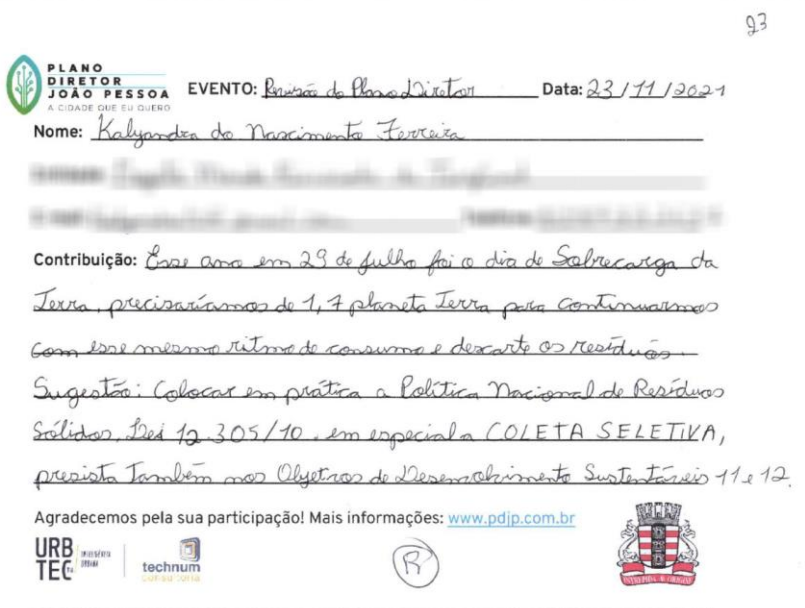 23
PLANO
DIRETOR
JOÃO PESSOA
A CIDADE QUE EU QUERO
EVENTO: Revisão do Plano Diretor Data: 23/11/2021
Nome: Kalyandra do Nascimento Ferreira
Contribuição: Esse ano em 29 de julho foi o dia de Sobrecarga da
Terra, precisaríamos de 1,7 planeta Terra para continuarmos
com esse mesmo ritmo de consumo e descarte os resíduos.
Sugestão: Colocar em prática a Política Nacional de Resíduos
Sólidos, Lei 12.305/10, em especial a COLETA SELETIVA,
presista também nos Objetivos de Desenvolvimento Sustentáveis 11 e 12.
Agradecemos pela sua participação! Mais informações: www.pdjp.com.br
URB
TEC
technum
consultoria
R